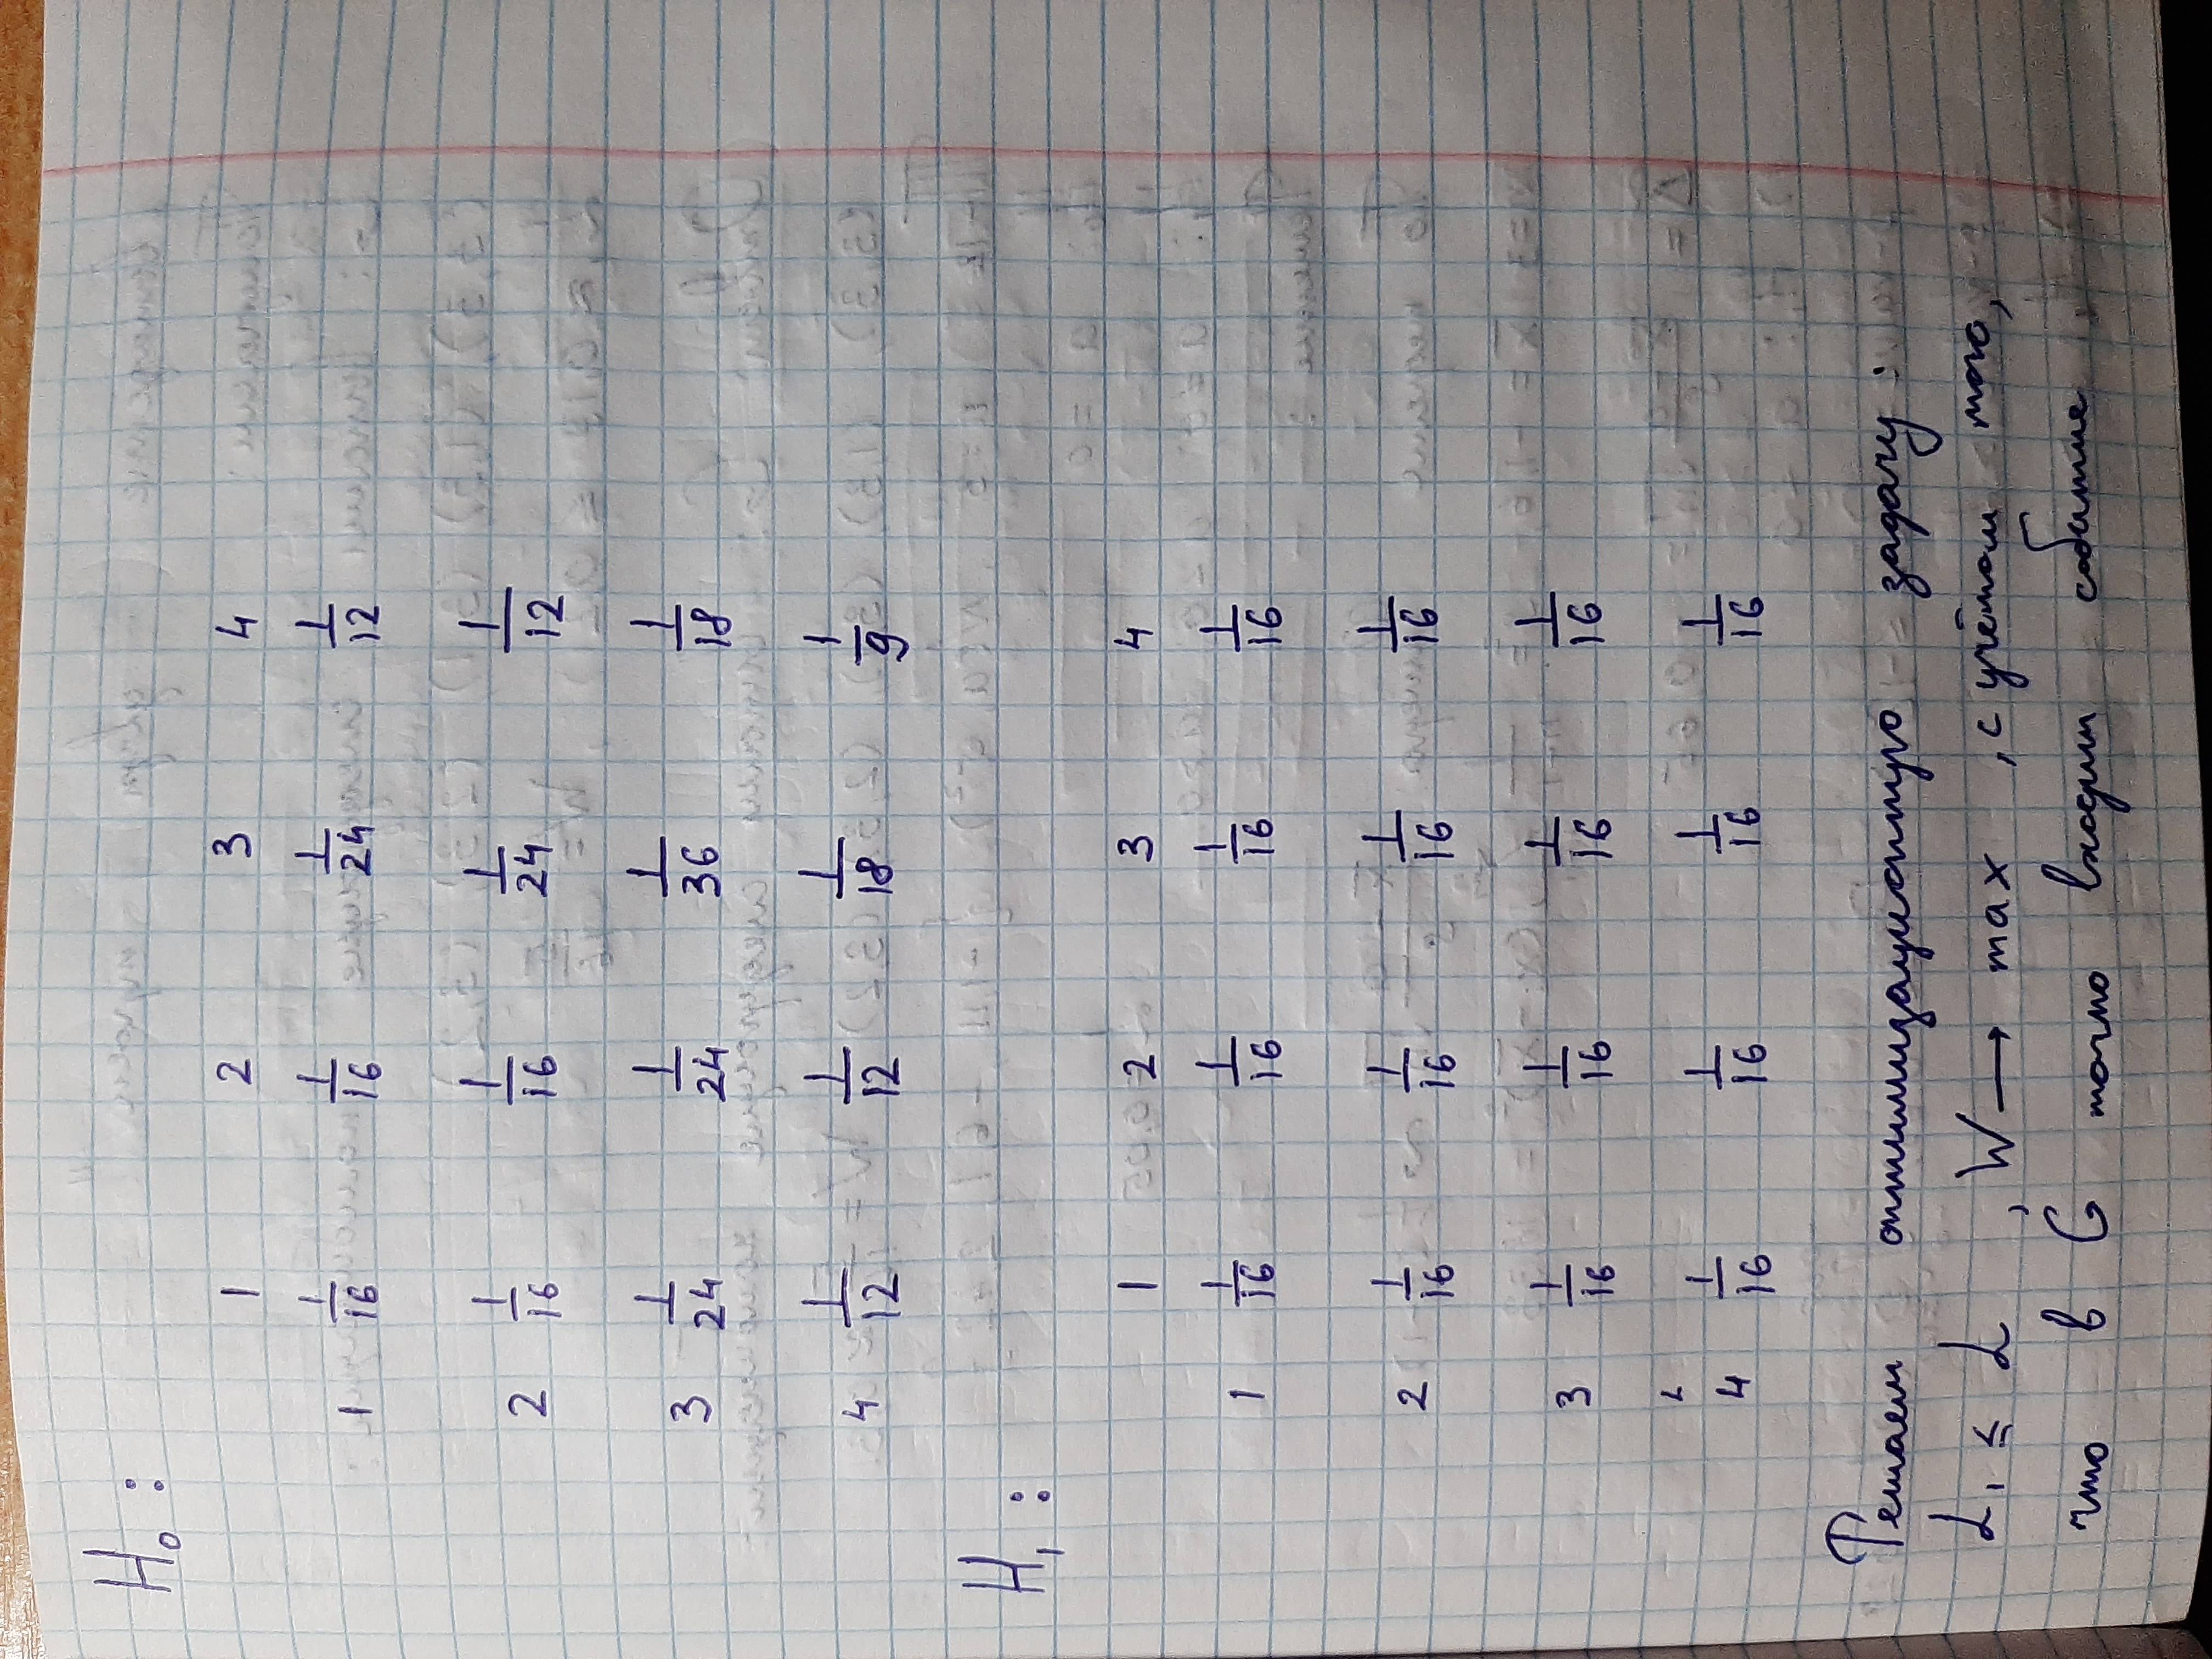 H₀ :
1 2 3 4
1 1/16 1/16 1/24 1/12
2 1/16 1/16 1/24 1/12
3 1/24 1/24 1/36 1/18
4 1/12 1/12 1/18 1/9
H₁ :
1 2 3 4
1 1/16 1/16 1/16 1/16
2 1/16 1/16 1/16 1/16
3 1/16 1/16 1/16 1/16
4 1/16 1/16 1/16 1/16
Решаем оптимизационную задачу :
α₁ ≤ α , W → max , с учётом того,
что в G точно входит событие